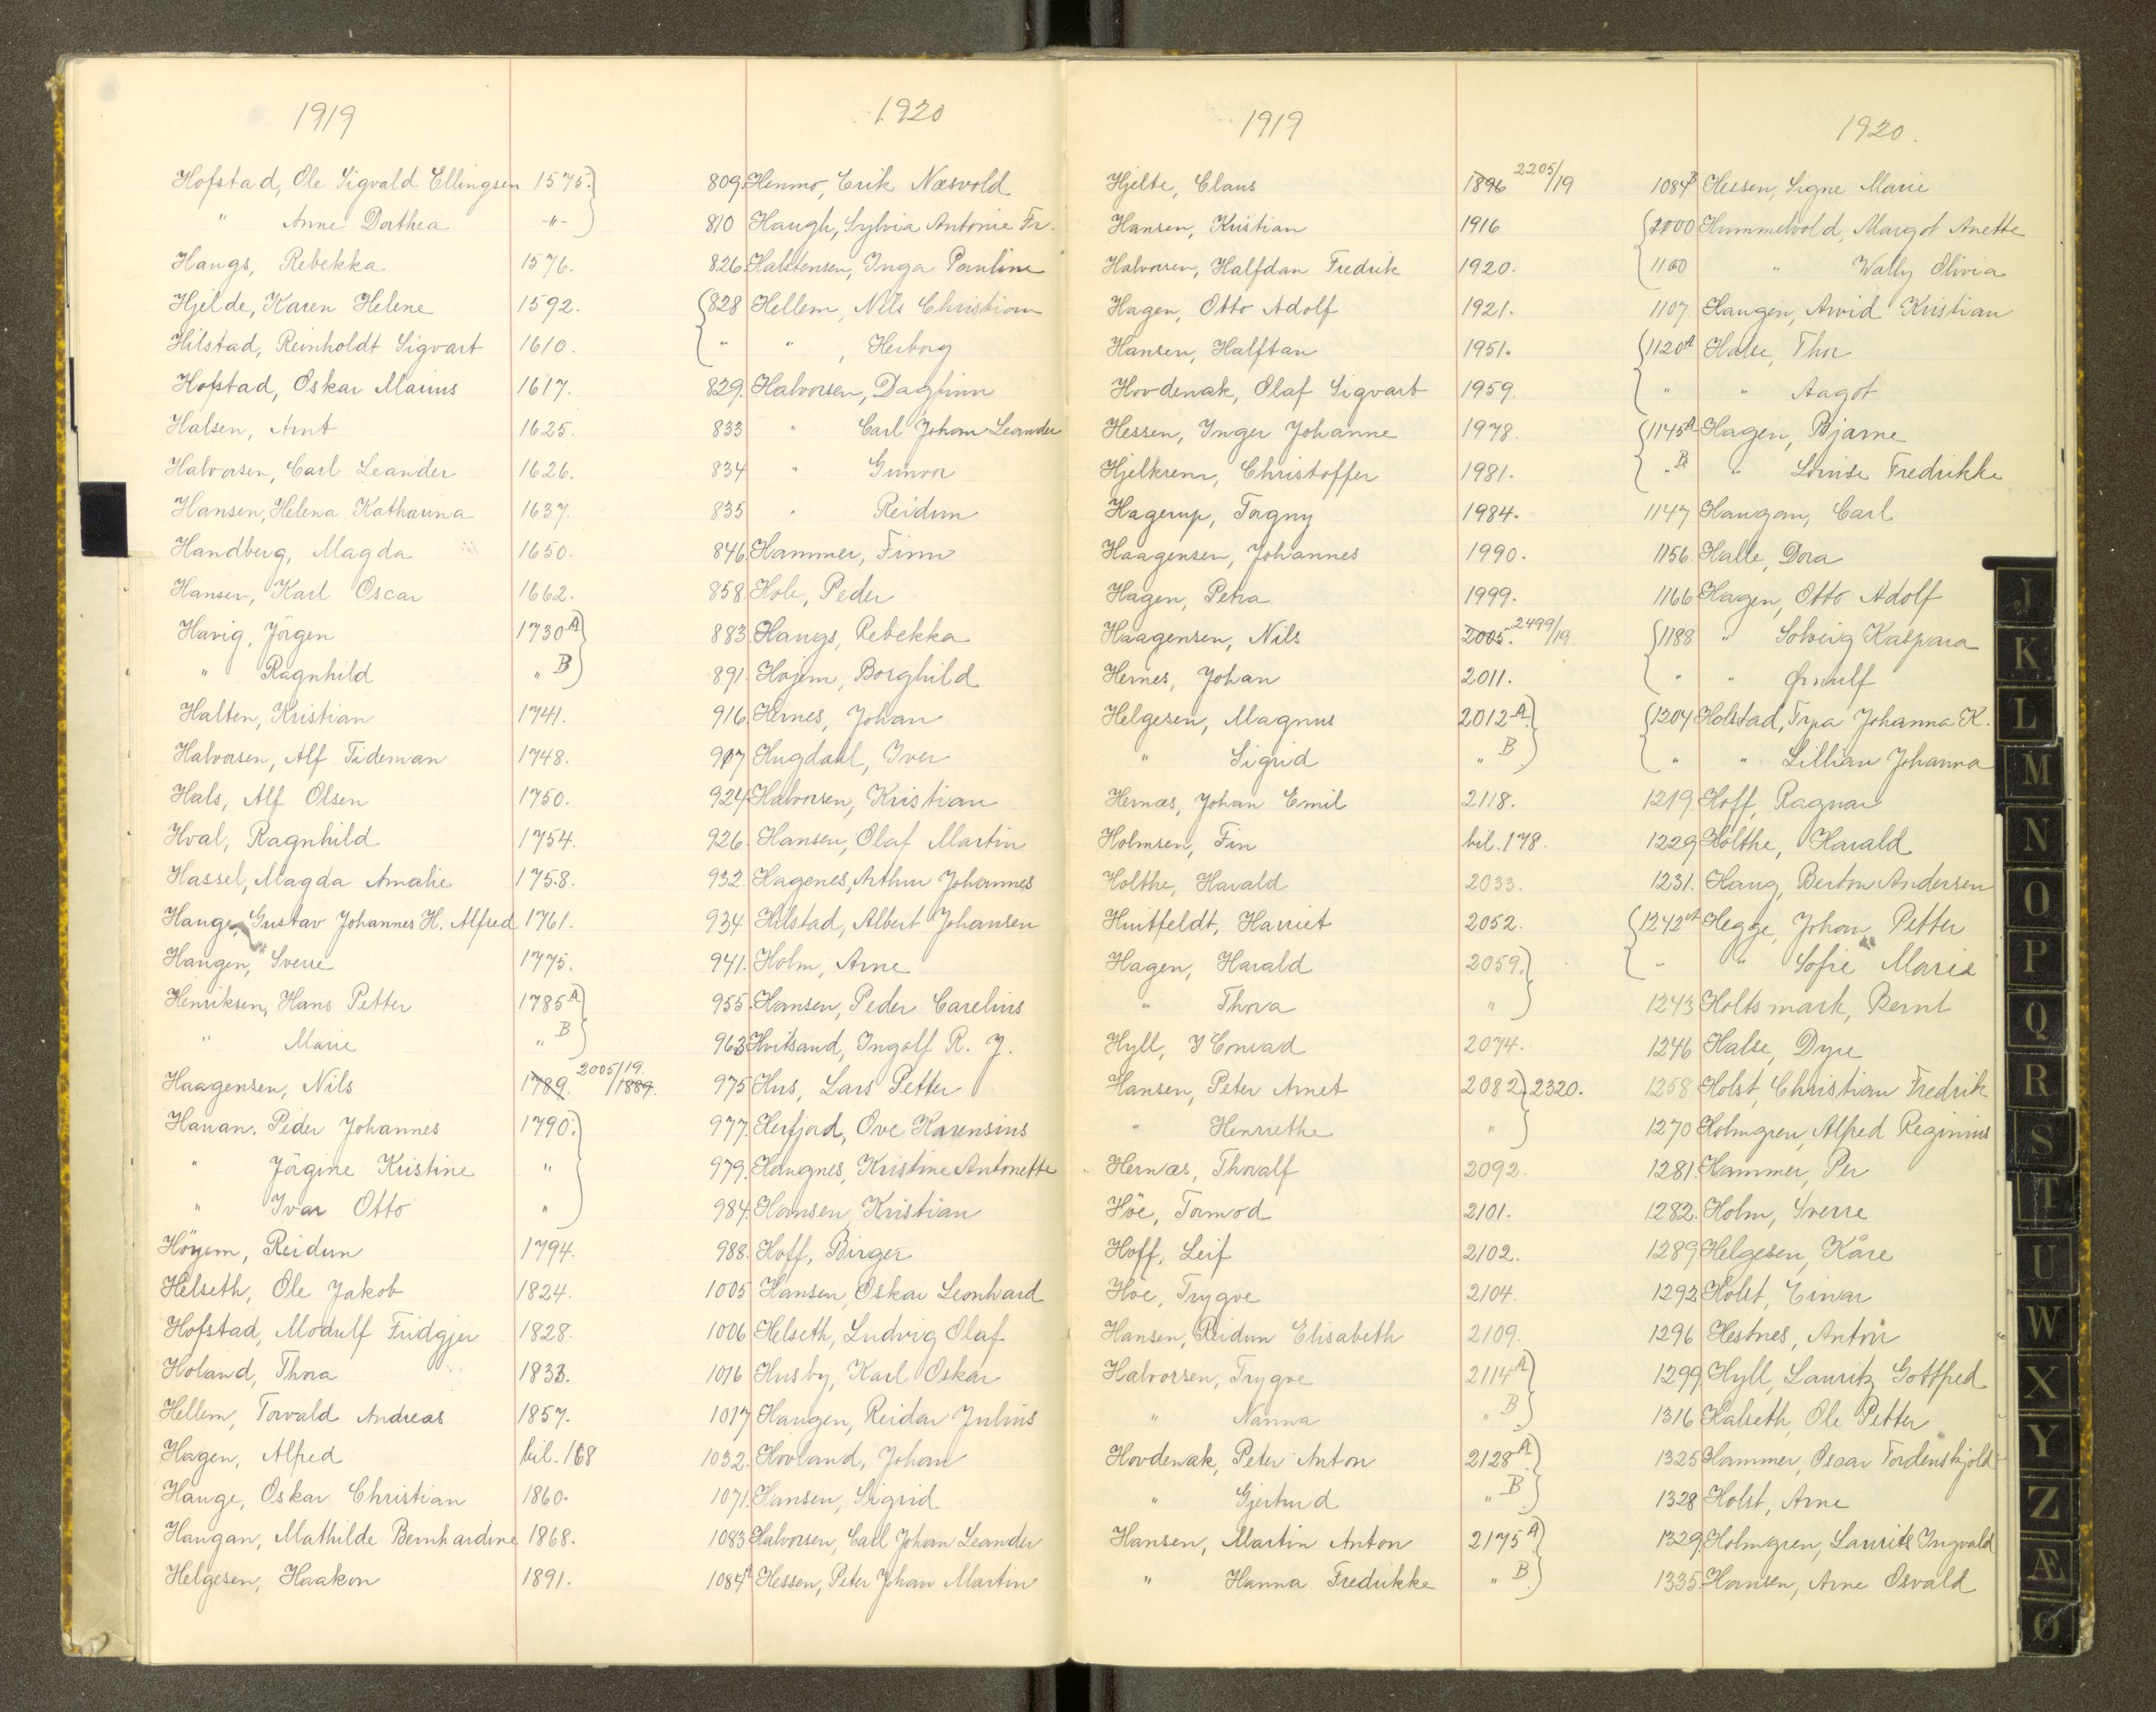 1919
Hofstad, Ole Sigvald Ellingsen 1575.
" Anne Dorthea -"-
Haugs, Rebekka 1576.
Hjelde, Karen Helene 1592.
Hilstad, Reinholdt Sigvart 1610.
Hofstad, Oskar Marius 1617.
Halsen, Arnt 1625.
Halvorsen, Carl Leander 1626.
Hansen, Helena Katharina 1637.
Handberg, Magda 1650.
Hansen, Karl Oscar 1662.
Havig, Jörgen 1730 A
" Ragnhild " B
Halten, Kristian 1741.
Halvorsen, Alf Tideman 1748.
Hals, Alf Olsen 1750.
Hval, Ragnhild 1754.
Hassel, Magda Amalie 1758.
Hauge, Gustav Johannes H. Alfred 1761.
Haugen, Sverre 1775.
Henriksen, Hans Petter 1785 A
" Marie " B
Haagensen, Nils 1789. 2005/19. /1889.
Hanan. Peder Johannes 1790.
" Jörgine Kristine "
" Ivar Otto "
Höyem, Reidun 1794.
Helseth, Ole Jakob 1824.
Hofstad, Modulf Fridgjer 1828.
Holand, Thora 1833.
Hellem, Torvald Andreas 1857.
Hagen, Alfred bil. 168
Hauge, Oskar Christian 1860.
Haugan, Mathilde Bernhardine 1868.
Helgesen, Haakon 1891.
1920
809. Henmo, Erik Næsvold
810 Haugh, Sylvia Antonie Fr.
826. Halstensen, Inga Pauline
828 Hellem, Nils Christian
" " , Herborg
829. Halvorsen, Dagfinn
833 " Carl Johan Leander
834 " Gunvor
835 " Reidun
846. Hammer, Finn
858. Hole, Peder
883. Haugs, Rebekka
891. Hojem, Borghild
916. Hernes, Johan
917 Hugdahl, Iver
924. Halvorsen, Kristian
926. Hansen, Olaf Martin
932. Hagenes, Arthur Johannes
934 Hilstad, Albert Johansen
941. Holm, Arne
955. Hansen, Peder Carelius
963 Hvitsand, Ingolf R. J.
975 Hus, Lars Petter
977. Herfjord, Ove Karensius
979. Haugnes, Kristine Antonette
984. Hansen, Kristian
988. Hoff, Birger
1005 Hansen, Oskar Leonhard
1006 Helseth, Ludvig Olaf
1016 Husby, Karl Oskar
1017 Haugen, Reidar Julius
1032. Hovland, Johan
1071. Hansen, Sigrid
1083 Halvorsen, Carl Johan Leander
1084 A Hessen, Peter Johan Martin
1919
Hjelte, Claus 1896 2205/19
Hansen, Kristian 1916
Halvorsen, Halfdan Fredrik 1920.
Hagen, Otto Adolf 1921.
Hansen, Halftan 1951.
Hovdenak, Olaf Sigvart 1959.
Hessen, Inger Johanne 1978.
Hjelkrem, Christoffer 1981.
Hagerup, Tagny 1984.
Haagensen, Johannes 1990.
Hagen, Petra 1999.
Haagensen, Nils 2005. 2499/19
Hernes, Johan 2011.
Helgesen, Magnus 2012 A.
" Sigrid " B
Hernæs, Johan Emil 2118.
Holmsen, Fin bil. 178.
Holthe, Harald 2033.
Huitfeldt, Harriet 2052.
Hagen, Harald 2059.
" Thora "
Hyll, Y Conrad 2074.
Hansen, Peter Arnet 2082. 2320.
" Henriethe "
Hernæs, Thoralf 2092.
Höe, Tormod 2101.
Hoff, Leif 2102.
Höe, Trygve 2104.
Hansen, Reidun Elisabeth 2109.
Halvorsen, Trygve 2114 A
" Nanna " B
Hovdenak, Peter Anton 2128 A
" Gjertrud " B
Hansen, Martin Anton 2175 A
" Hanna Fredrikke " B
1920.
1084 B Hessen, Signe Marie
1100 Hummelvold, Margot Anette
1100 " Wally Olivia
1107 Haugen, Arvid Kristian
1120 A Halse, Thor
" " Aagot
1145 A Hagen, Bjarne
" B " Lovise Fredrikke
1147 Haugan, Carl
1156. Halle, Dora
1166 Hagen, Otto Adolf
1188 " Solveig Kaspara
" " Ørnulf
1204 Holstad, Tyra Johanna K.
" " Lillian Johanna
1219. Hoff, Ragnar
1229 Holthe, Harald
1231. Haug, Berton Andersen
1242 A Hegge, Johan Petter
" " Sofie Marie
1243 Holtsmark, Bernt
1246 Halse, Dyre
1258 Holst, Christian Fredrik
1270 Holmgren, Alfred Reginius
1281. Hammer, Per
1282. Holm, Sverre
1289. Helgesen, Kåre
1292 Holst, Einar
1296 Hestnes, Anton
1299 Hyll, Lauritz Gottfred
1316 Halseth, Ole Petter
1325 Hammer, Oscar Tordenskjold
1328 Holst, Arne
1329. Holmgren, Laurits Ingvald
1335. Hansen, Arne Osvald
J
K
L
M
N
O
P
Q
R
S
T
U
W
X
Y
Z
Æ
Ø